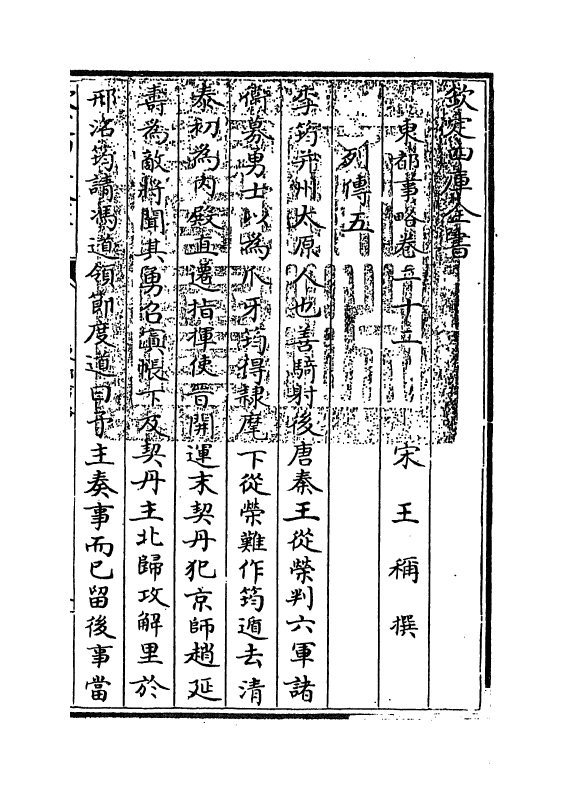 欽定四庫全書
東都事略卷二十二
宋 王 稱 撰
列傳五
李筠并州太原人也善騎射後唐秦王從榮判六軍諸
衛募勇士以為爪牙筠得隸麾下從榮難作筠遁去清
泰初為内殿直遷指揮使晉開運末契丹犯京師趙延
壽為敵將聞其勇召寘帳下及契丹主北歸攻解里於
邢洺筠請馮道領節度道曰予主奏事而已留後事當